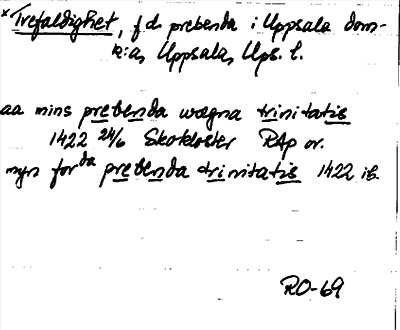 × Trefaldighet, f.d. prebenda i Uppsala dom-
k:a, Uppsala, Ups. l.
aa mins prebenda wægna trinitatis
1422 24/6 Skokloster RAp or.
myn for da prebenda trinitatis 1422 ib.
RO-69